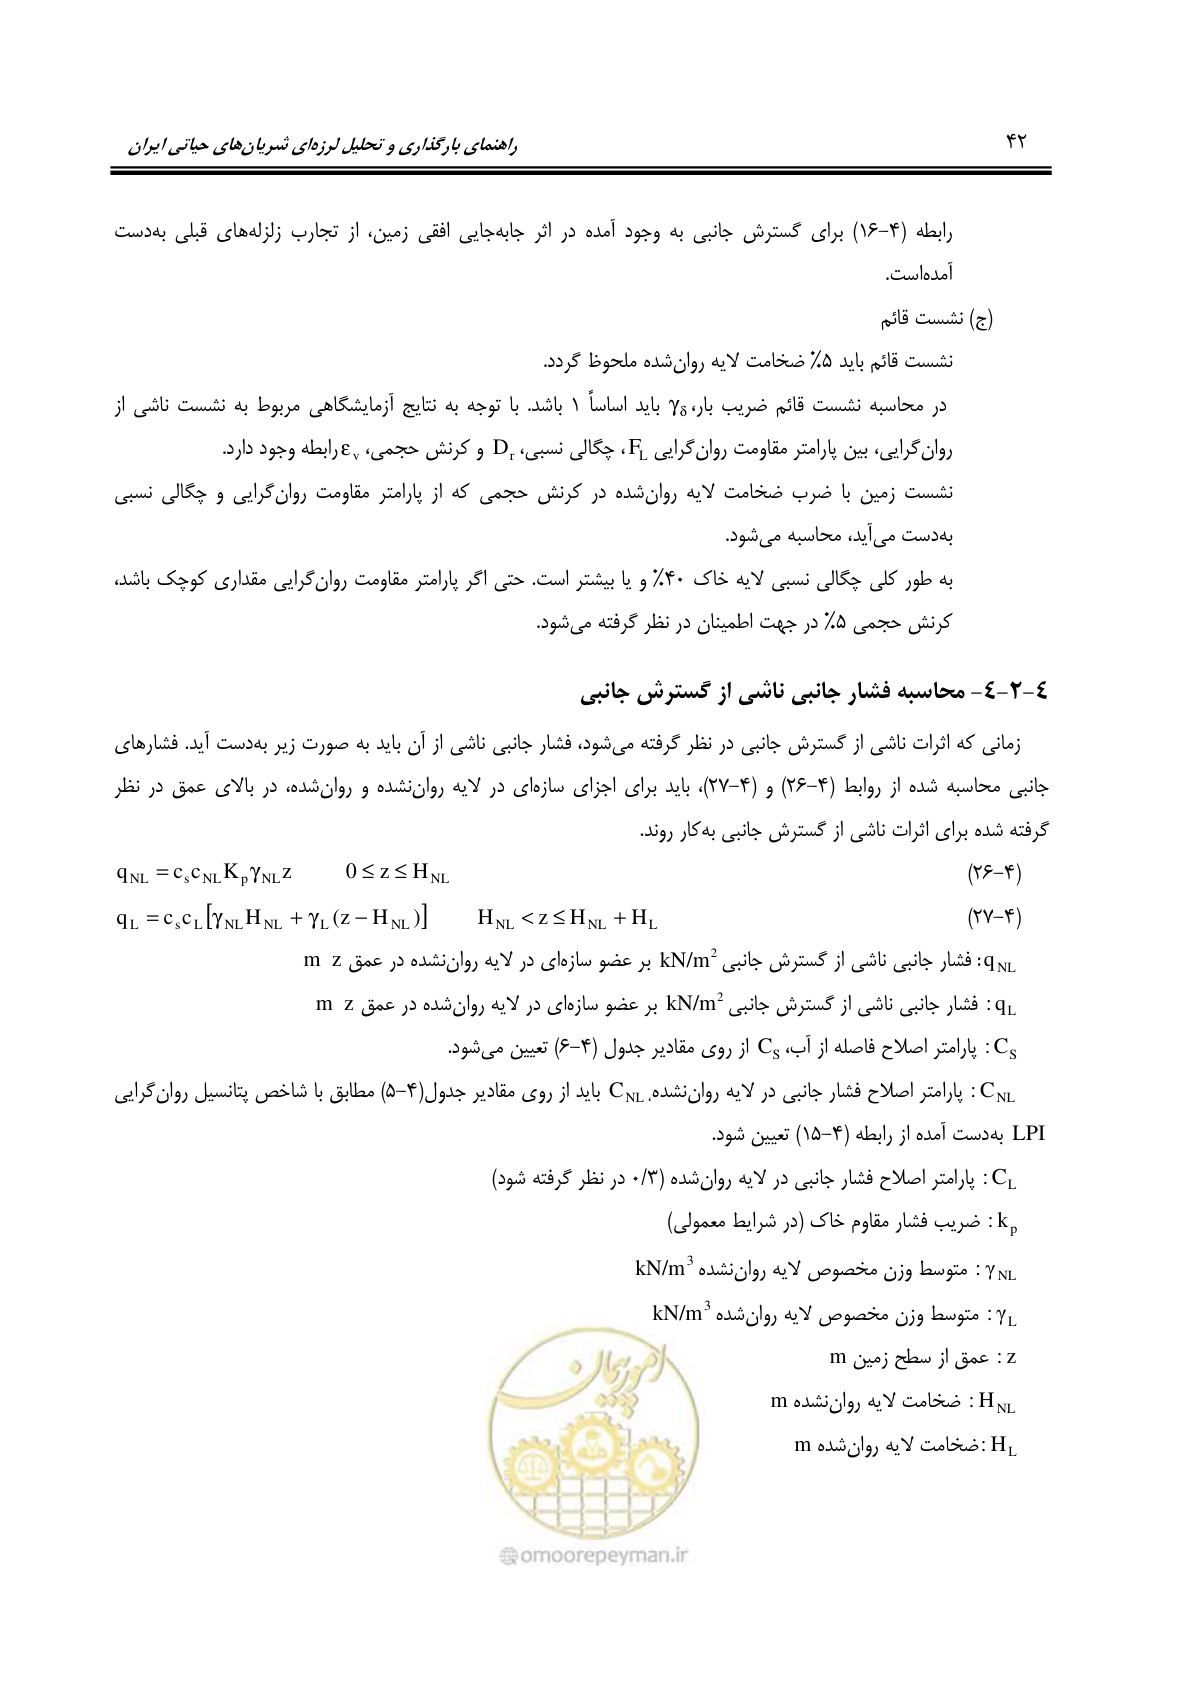 راهنمای بارگذاری و تحلیل لرزه‌ای شریان‌های حیاتی ایران ۴۲
رابطه (۴-۱۶) برای گسترش جانبی به وجود آمده در اثر جابه‌جایی افقی زمین، از تجارب زلزله‌های قبلی به‌دست
آمده‌است.
(ج) نشست قائم
نشست قائم باید ۵٪ ضخامت لایه روان‌شده ملحوظ گردد.
در محاسبه نشست قائم ضریب بار، γδ باید اساساً ۱ باشد. با توجه به نتایج آزمایشگاهی مربوط به نشست ناشی از
روان‌گرایی، بین پارامتر مقاومت روان‌گرایی FL، چگالی نسبی، Dr و کرنش حجمی، εv رابطه وجود دارد.
نشست زمین با ضرب ضخامت لایه روان‌شده در کرنش حجمی که از پارامتر مقاومت روان‌گرایی و چگالی نسبی
به‌دست می‌آید، محاسبه می‌شود.
به طور کلی چگالی نسبی لایه خاک ۴۰٪ و یا بیشتر است. حتی اگر پارامتر مقاومت روان‌گرایی مقداری کوچک باشد،
کرنش حجمی ۵٪ در جهت اطمینان در نظر گرفته می‌شود.
٤-۲-٤- محاسبه فشار جانبی ناشی از گسترش جانبی
زمانی که اثرات ناشی از گسترش جانبی در نظر گرفته می‌شود، فشار جانبی ناشی از آن باید به صورت زیر به‌دست آید. فشارهای
جانبی محاسبه شده از روابط (۴-۲۶) و (۴-۲۷)، باید برای اجزای سازه‌ای در لایه روان‌نشده و روان‌شده، در بالای عمق در نظر
گرفته شده برای اثرات ناشی از گسترش جانبی به‌کار روند.
(۴-۲۶) qNL = cscNLKpγNLz 0 ≤ z ≤ HNL
(۴-۲۷) qL = cscL[γNLHNL + γL(z − HNL)] HNL < z ≤ HNL + HL
qNL: فشار جانبی ناشی از گسترش جانبی kN/m² بر عضو سازه‌ای در لایه روان‌نشده در عمق m z
qL: فشار جانبی ناشی از گسترش جانبی kN/m² بر عضو سازه‌ای در لایه روان‌شده در عمق m z
CS: پارامتر اصلاح فاصله از آب، CS از روی مقادیر جدول (۴-۶) تعیین می‌شود.
CNL: پارامتر اصلاح فشار جانبی در لایه روان‌نشده، CNL باید از روی مقادیر جدول(۴-۵) مطابق با شاخص پتانسیل روان‌گرایی
LPI به‌دست آمده از رابطه (۴-۱۵) تعیین شود.
CL: پارامتر اصلاح فشار جانبی در لایه روان‌شده (۰/۳ در نظر گرفته شود)
kp: ضریب فشار مقاوم خاک (در شرایط معمولی)
γNL: متوسط وزن مخصوص لایه روان‌نشده kN/m³
γL: متوسط وزن مخصوص لایه روان‌شده kN/m³
z: عمق از سطح زمین m
HNL: ضخامت لایه روان‌نشده m
HL: ضخامت لایه روان‌شده m
امور پیمان
omoorepeyman.ir